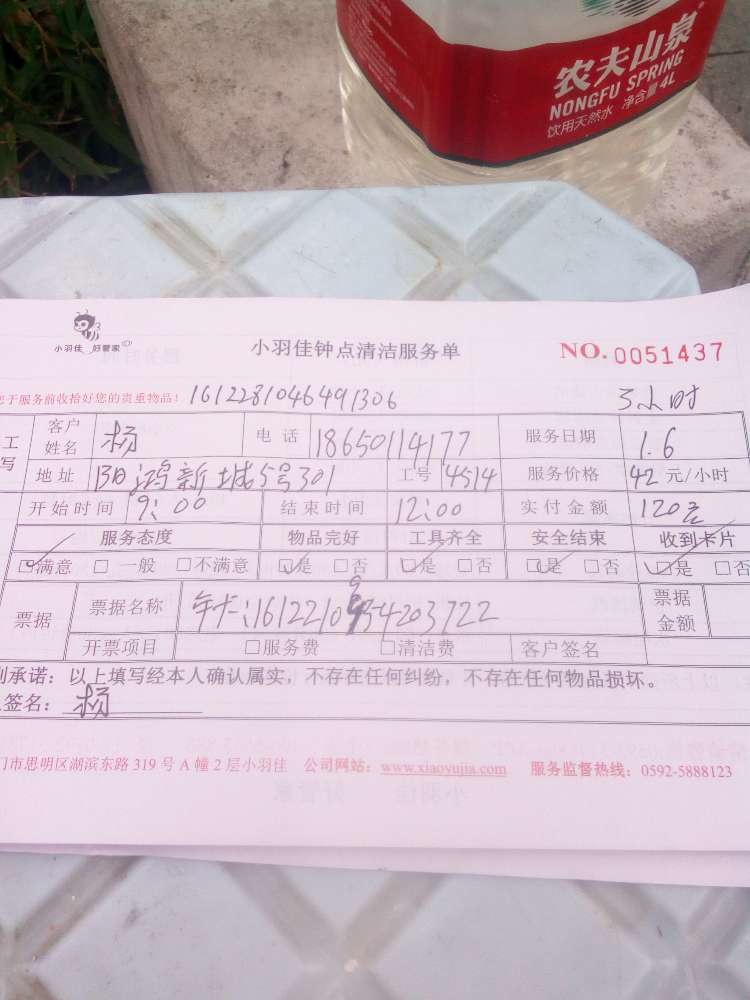 农夫山泉
NONGFU SPRING
饮用天然水 净含量 4L
小羽佳 好管家
小羽佳钟点清洁服务单
NO. 0051437
于服务前收拾好您的贵重物品! 1612281046491306 3小时
工 客户姓名 杨 电话 18650114177 服务日期 1.6
写 地址 阳鸿新城5号301 工号 4514 服务价格 42 元/小时
开始时间 9:00 结束时间 12:00 实付金额 120元
服务态度 物品完好 工具齐全 安全结束 收到卡片
☑满意 □一般 □不满意 ☑是 □否 ☑是 □否 ☑是 □否 ☑是 □否
票据 票据名称 年卡:161221 票据金额
开票项目 □服务费 □清洁费 客户签名
承诺:以上填写经本人确认属实,不存在任何纠纷,不存在任何物品损坏。
签名: 杨
门市思明区湖滨东路 319 号 A 幢 2 层小羽佳 公司网站:www.xiaoyujia.com 服务监督热线:0592-5888123